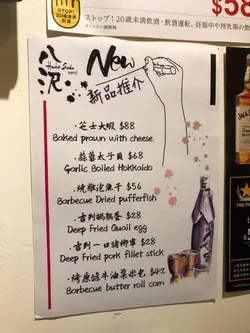 STOP!
20歳未満飲酒
ストップ!20歳未満飲酒・飲酒運転。妊娠中や授乳期の飲
$58
八沢
New
新品推介
·芝士大蝦 $88
Baked prawn with cheese
·蒜蓉太子貝 $68
Garlic Boiled Hokkaido
·燒雞泡魚干 $56
Barbecue Dried pufferfish
·吉列鵪鶉蛋 $28
Deep Fried Quail egg
·吉列一口豬柳串 $28
Deep Fried pork fillet stick
·烤原鹽牛油粟米包 $42
Barbecue butter roll corn
JACK